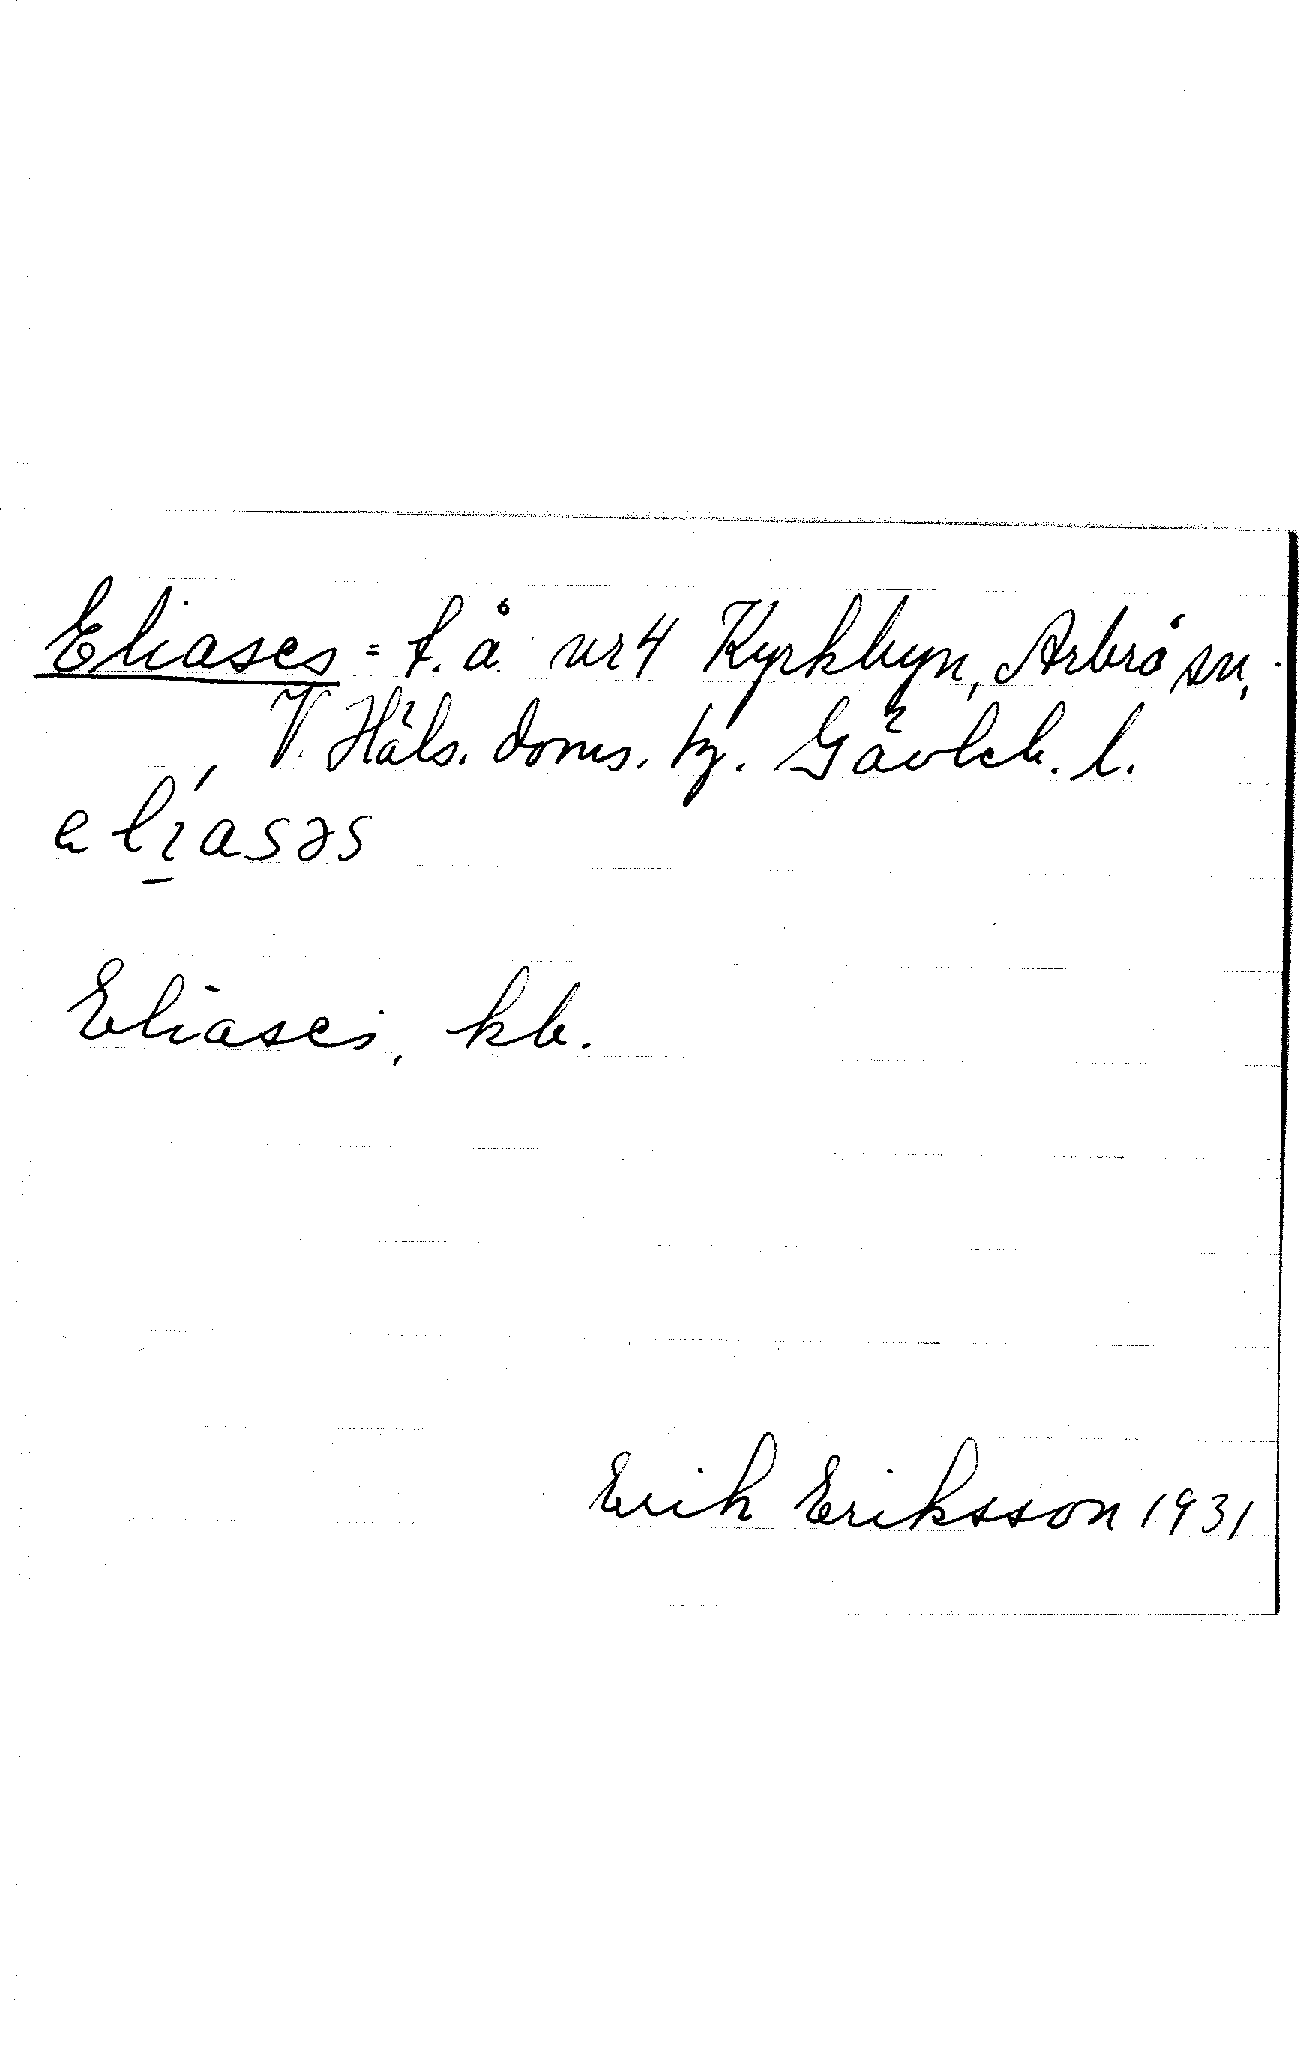 Eliases = f.å. nr 4 Kyrkbyn, Arbrå sn,
V. Häls. doms. tg. Gävleb. l.
elíasəs
Eliases, kb.
Erik Eriksson 1931